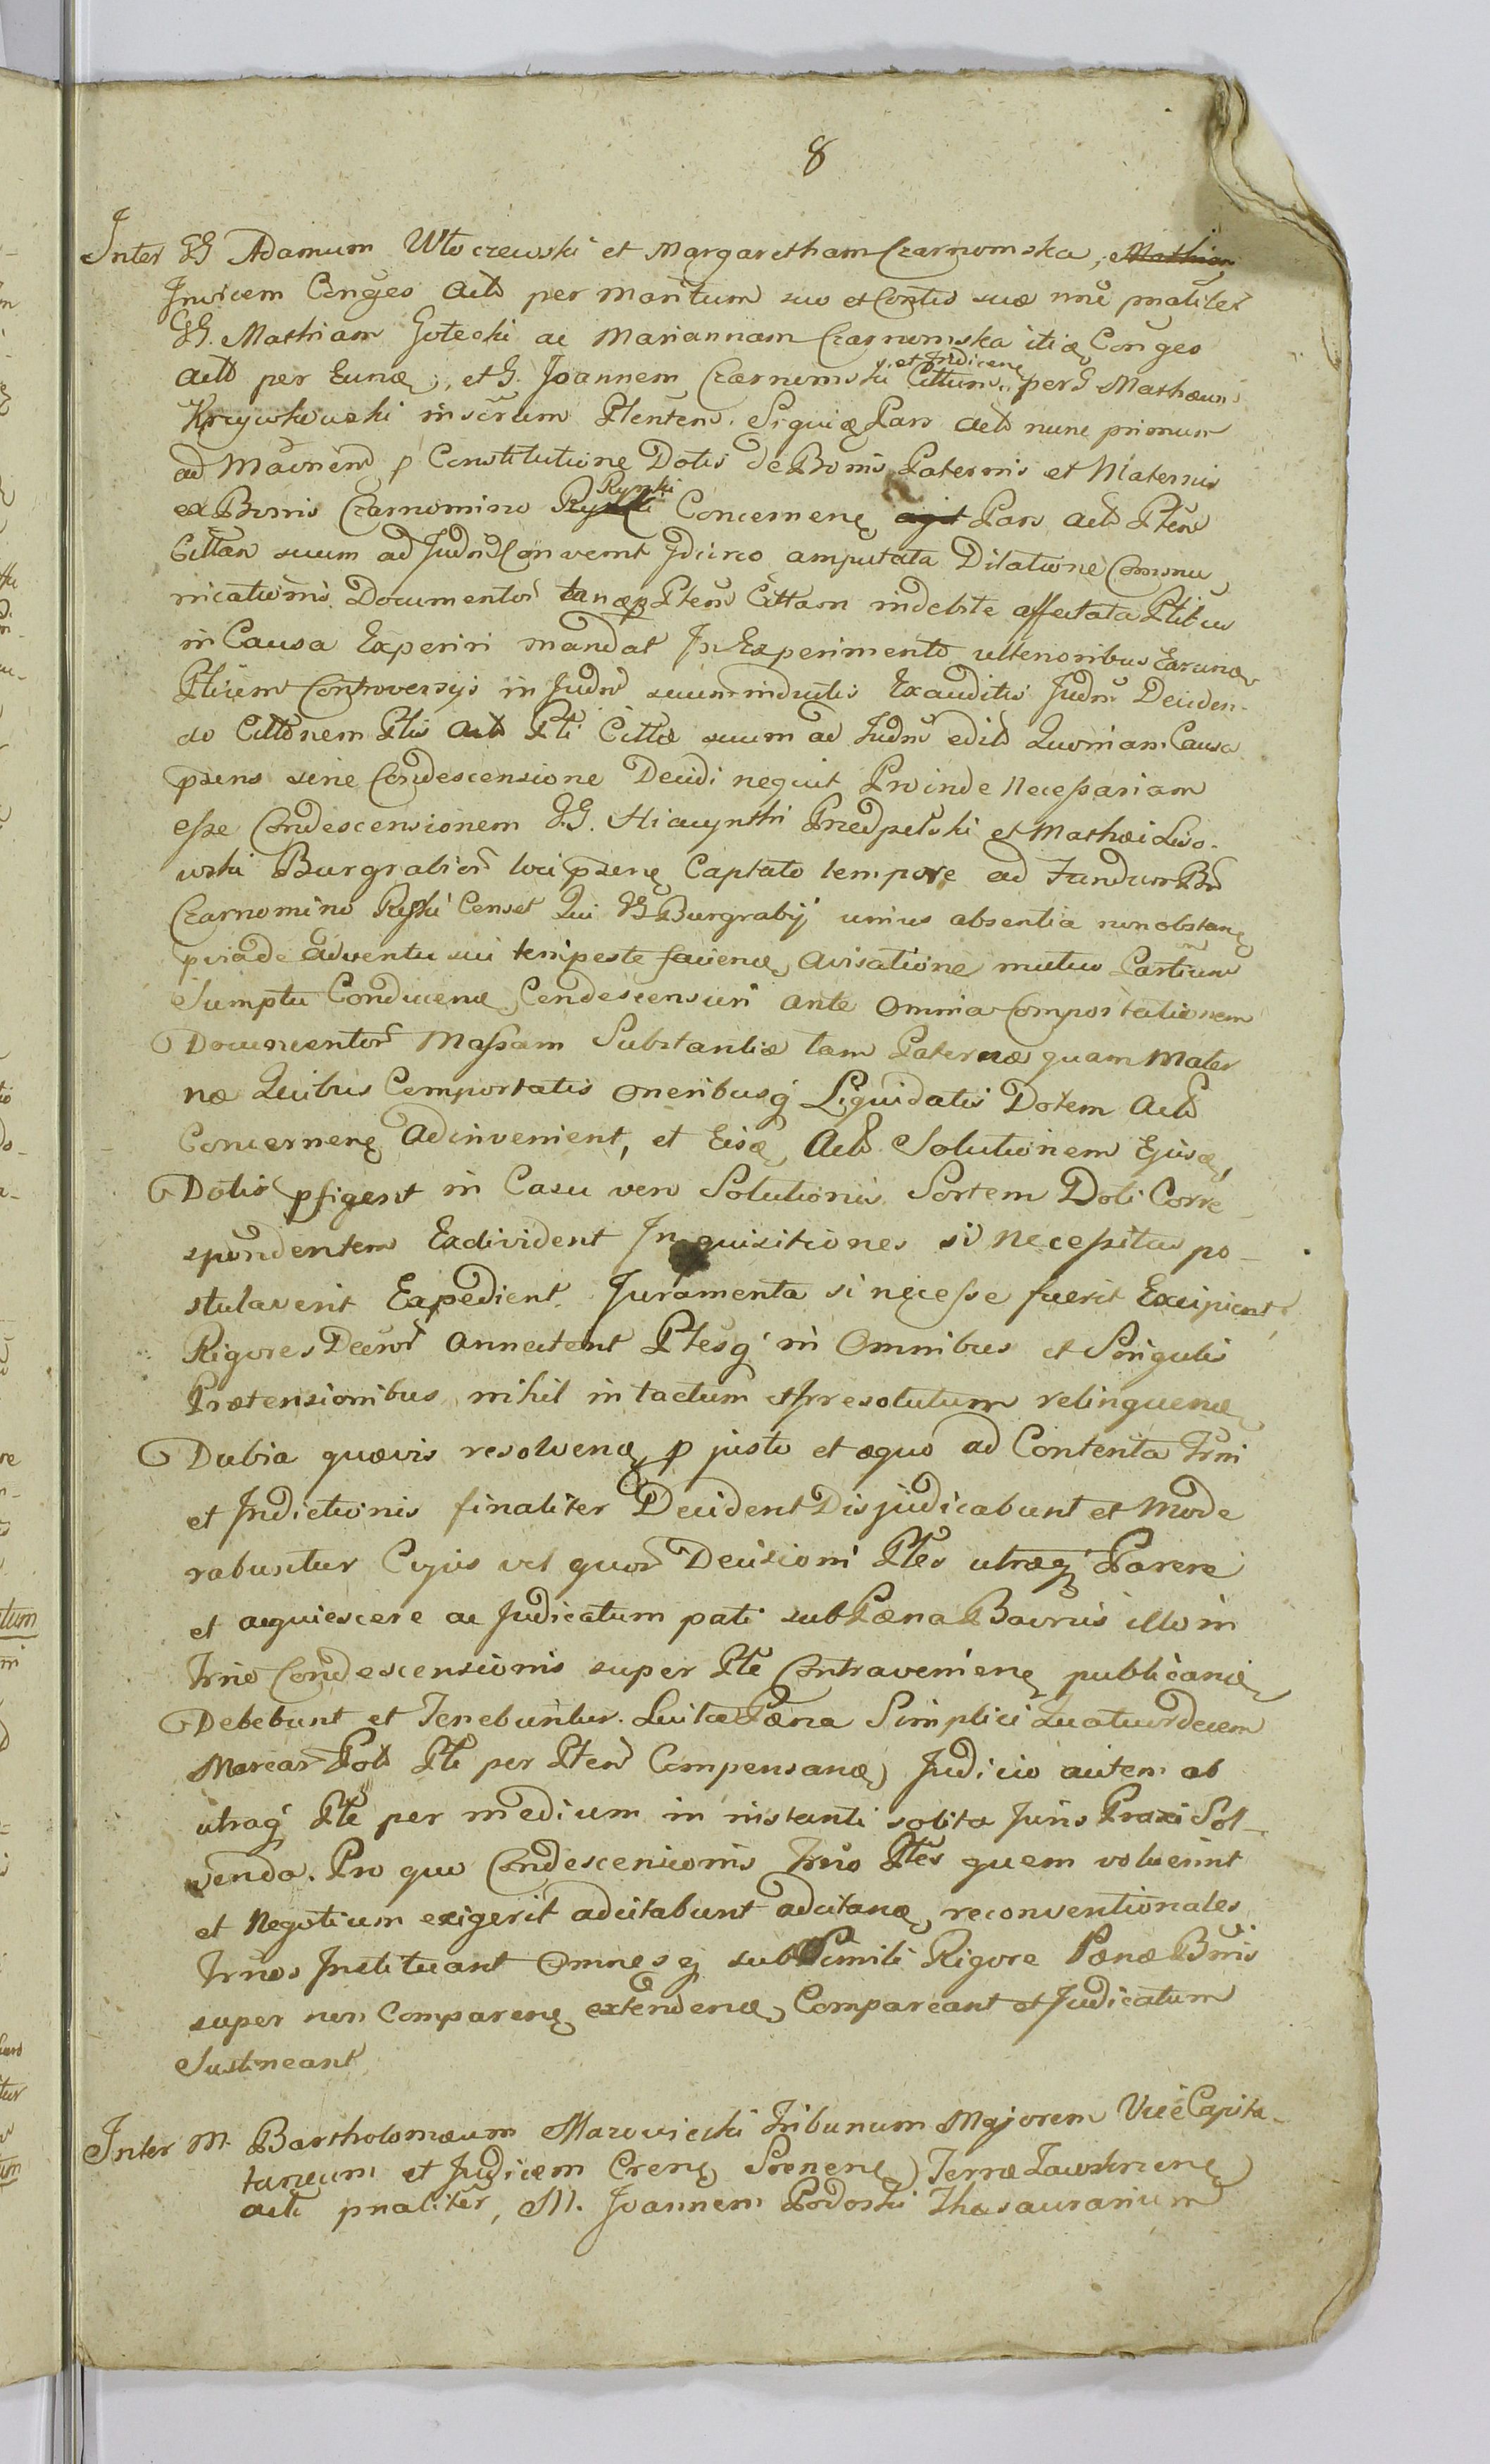 8
Inter GG Adamum Włoczewski et Margaretham Czarnomska, Mathian
Invicem Conges Act per Maritum suo et Contis suæ nne pnaliter
GG. Mathiam Gotecki ac Mariannam Czarnomska itiq Conges
Act per Eunq, et G. Joannem Czarnomski et Judicenq Cittum, per G Mathæum
Krzywkowski inscrum Plentem. Siquiq Pars Act nunc primum
ad Maõnend p Constitutione Dotis de Bonis Paternis et Maternis
ex Bonis Czarnomino Rynki Rynki Concernenq agit Pars Act Pten
Cittan suum ad Judn Convenit Idcirco amputata Dilatione Commu
nicationis Documentor tanqp Pten Cittam indebite affectata Ptibus
in Causa Experiri mandat In Experimento ulterioribus Earunq
Ptium Controversijs in Judn suum inductis Exauditis Judm Deciden
do Cittonem Ptis Act Pti Cittæ suum ad Judm edit Quoniam Causa
psens sine Condescensione Decidi nequit Proinde Necessariam
esse Condescensionem GG. Hiacynthi Przedpełski et Mathæi Liso-
wski Burgrabior loci psenq Captato tempore ad Fundum Bn
Czarnomino Ryski Censet Qui GG Burgrabij unius absentia non obstanq
pviade Adventu sui tempeste facienq Avisatione mutuo Partium
Sumptu Conducenq Condescensuri ante Omnia Comportationem
Documentor Massam Substantiæ tam Paternæ quam Mater
næ Quibus Comportatis Oneribusq Liquidatis Dotem Act
Concernenq Adinvenient, et Eisq Act Solutionem Ejusq
Dotis pfigent in Casu vero Solutionis Sortem Doti Corre
spondentem Exdivident Inquisitiones si Necessitas po-
stulaverit Expedient. Juramenta si necesse fuerit Excipient
Rigores Decret Annectent Ptesq in Omnibus et Singulis
Prætensionibus nihil intactum et Irresolutum relinquenq
Dubia quævis resolvenq p justo et æquo ad Contenta Trmi
et Indictionis finaliter Decident Disjudicabunt et Mode
rabuntur Cujus vel quor Decisioni Ptes utræq Parere
et acquiescere ac Judicatum pati sub Pæna Baõnis illo in
Trno Condescensionis super Pte Contravenienq publicanq
Debebunt et Tenebuntur. Luitæ Pæna Simplici Quatuordecem
Marcar Pol Pti per Pten Compensanq Judicio autem ab
utraq Pte per medium in instanti solita Juris Praxi Sol-
venda. Pro quo Condescensionis Trno Ptes quem voluerint
et Negotium exigerit adcitabunt adcitanq reconventionales
Trnos Instituant Omnesq sub Simili Rigore Pænæ Bnis
super non Comparenq extendenq Compareant et Judicatum
Sustineant
Inter M. Bartholomæum Mazowiecki Tribunum Majorem Vice Capita-
tuneum et Judicem Crenq Srenenq Terræ Zawskrzenq
acti pnaliter, M. Joannem Podoski Thesaurarium